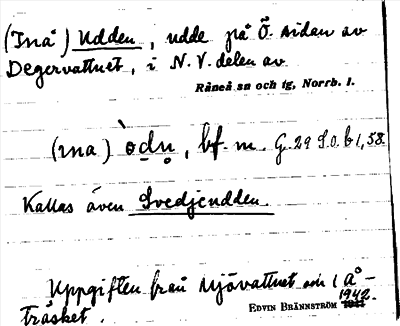 (Inå) Udden, udde på Ö. sidan av
Degervattnet, i N.V. delen av
Råneå sn och tg, Norrb. l.
(ına) ˋodn̥, bf. m. G. 29 S.O. b 1,58.
Kallas även Svedjeudden.
Uppgiften från Mjövattnet och i Å-
träsket.
EDVIN BRÄNNSTRÖM 1942.